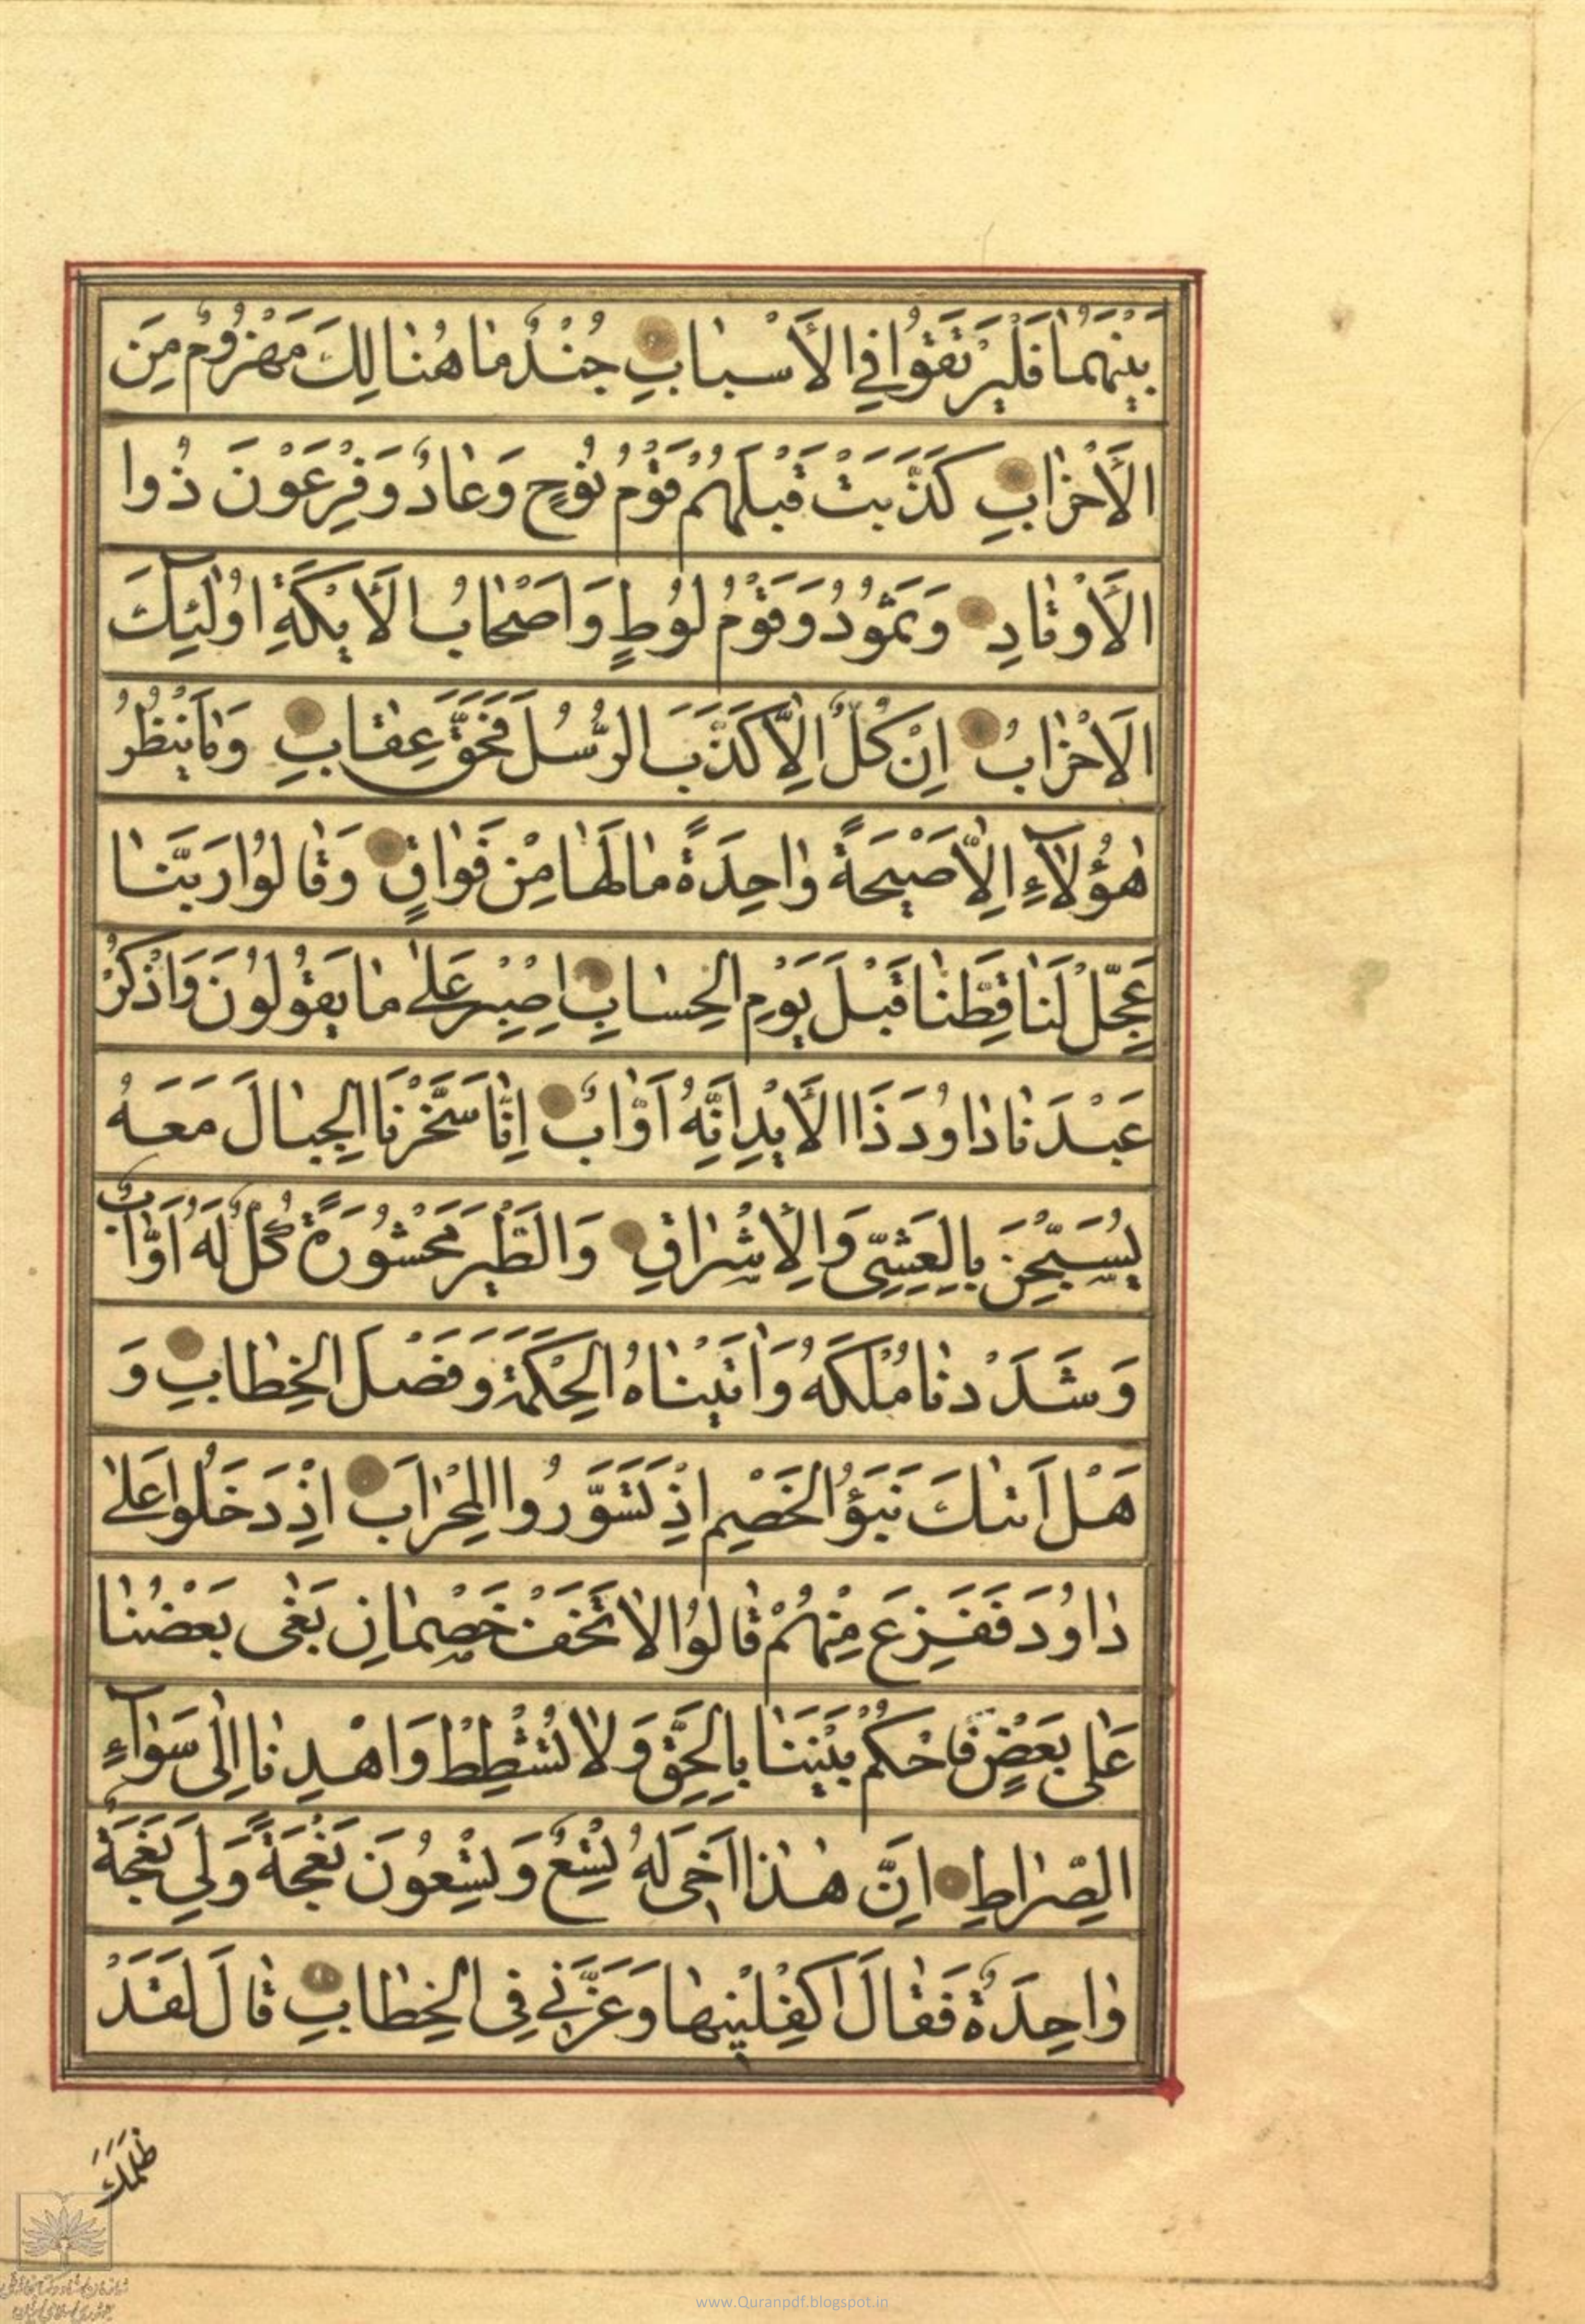 بَيْنَهُمٰا فَلْيَرْتَقُوا فِي الْأَسْبٰابِ جُنْدٌ مٰا هُنٰالِكَ مَهْزُومٌ مِنَ
الْأَحْزٰابِ كَذَّبَتْ قَبْلَهُمْ قَوْمُ نُوحٍ وَعٰادٌ وَفِرْعَوْنَ ذُوا
الْأَوْتٰادِ وَثَمُودُ وَقَوْمُ لُوطٍ وَاَصْحٰابُ الْأَيْكَةِ اُولٰئِكَ
الْاَحْزٰابُ اِنْ كُلٌّ اِلّٰا كَذَّبَ الرُّسُلَ فَحَقَّ عِقٰابِ وَمٰا يَنْظُرُ
هٰؤُلٰآءِ اِلّٰا صَيْحَةً وٰاحِدَةً مٰا لَهٰا مِنْ فَوٰاقٍ وَقٰالُوا رَبَّنٰا
عَجِّلْ لَنٰا قِطَّنٰا قَبْلَ يَوْمِ الْحِسٰابِ اِصْبِرْ عَلىٰ مٰا يَقُولُونَ وَاذْكُرْ
عَبْدَنٰا دٰاوُدَ ذَا الْأَيْدِ اِنَّهُ اَوّٰابٌ اِنّٰا سَخَّرْنَا الْجِبٰالَ مَعَهُ
يُسَبِّحْنَ بِالْعَشِيِّ وَالْإِشْرٰاقِ وَالطَّيْرَ مَحْشُورَةً كُلٌّ لَهُ اَوّٰابٌ
وَشَدَدْنٰا مُلْكَهُ وَاٰتَيْنٰاهُ الْحِكْمَةَ وَفَصْلَ الْخِطٰابِ وَ
هَلْ اَتٰىكَ نَبَؤُا الْخَصْمِ اِذْ تَسَوَّرُوا الْمِحْرٰابَ اِذْ دَخَلُوا عَلىٰ
دٰاوُدَ فَفَزِعَ مِنْهُمْ قٰالُوا لٰا تَخَفْ خَصْمٰانِ بَغٰى بَعْضُنٰا
عَلٰى بَعْضٍ فَاحْكُمْ بَيْنَنٰا بِالْحَقِّ وَلٰا تُشْطِطْ وَاهْدِنٰا اِلٰى سَوٰآءِ
الصِّرٰاطِ اِنَّ هٰذٰا اَخٖي لَهُ تِسْعٌ وَتِسْعُونَ نَعْجَةً وَلِيَ نَعْجَةٌ
وٰاحِدَةٌ فَقٰالَ اَكْفِلْنِيهٰا وَعَزَّنِي فِي الْخِطٰابِ قٰالَ لَقَدْ
ظَلَمَكَ
www.Quranpdf.blogspot.in